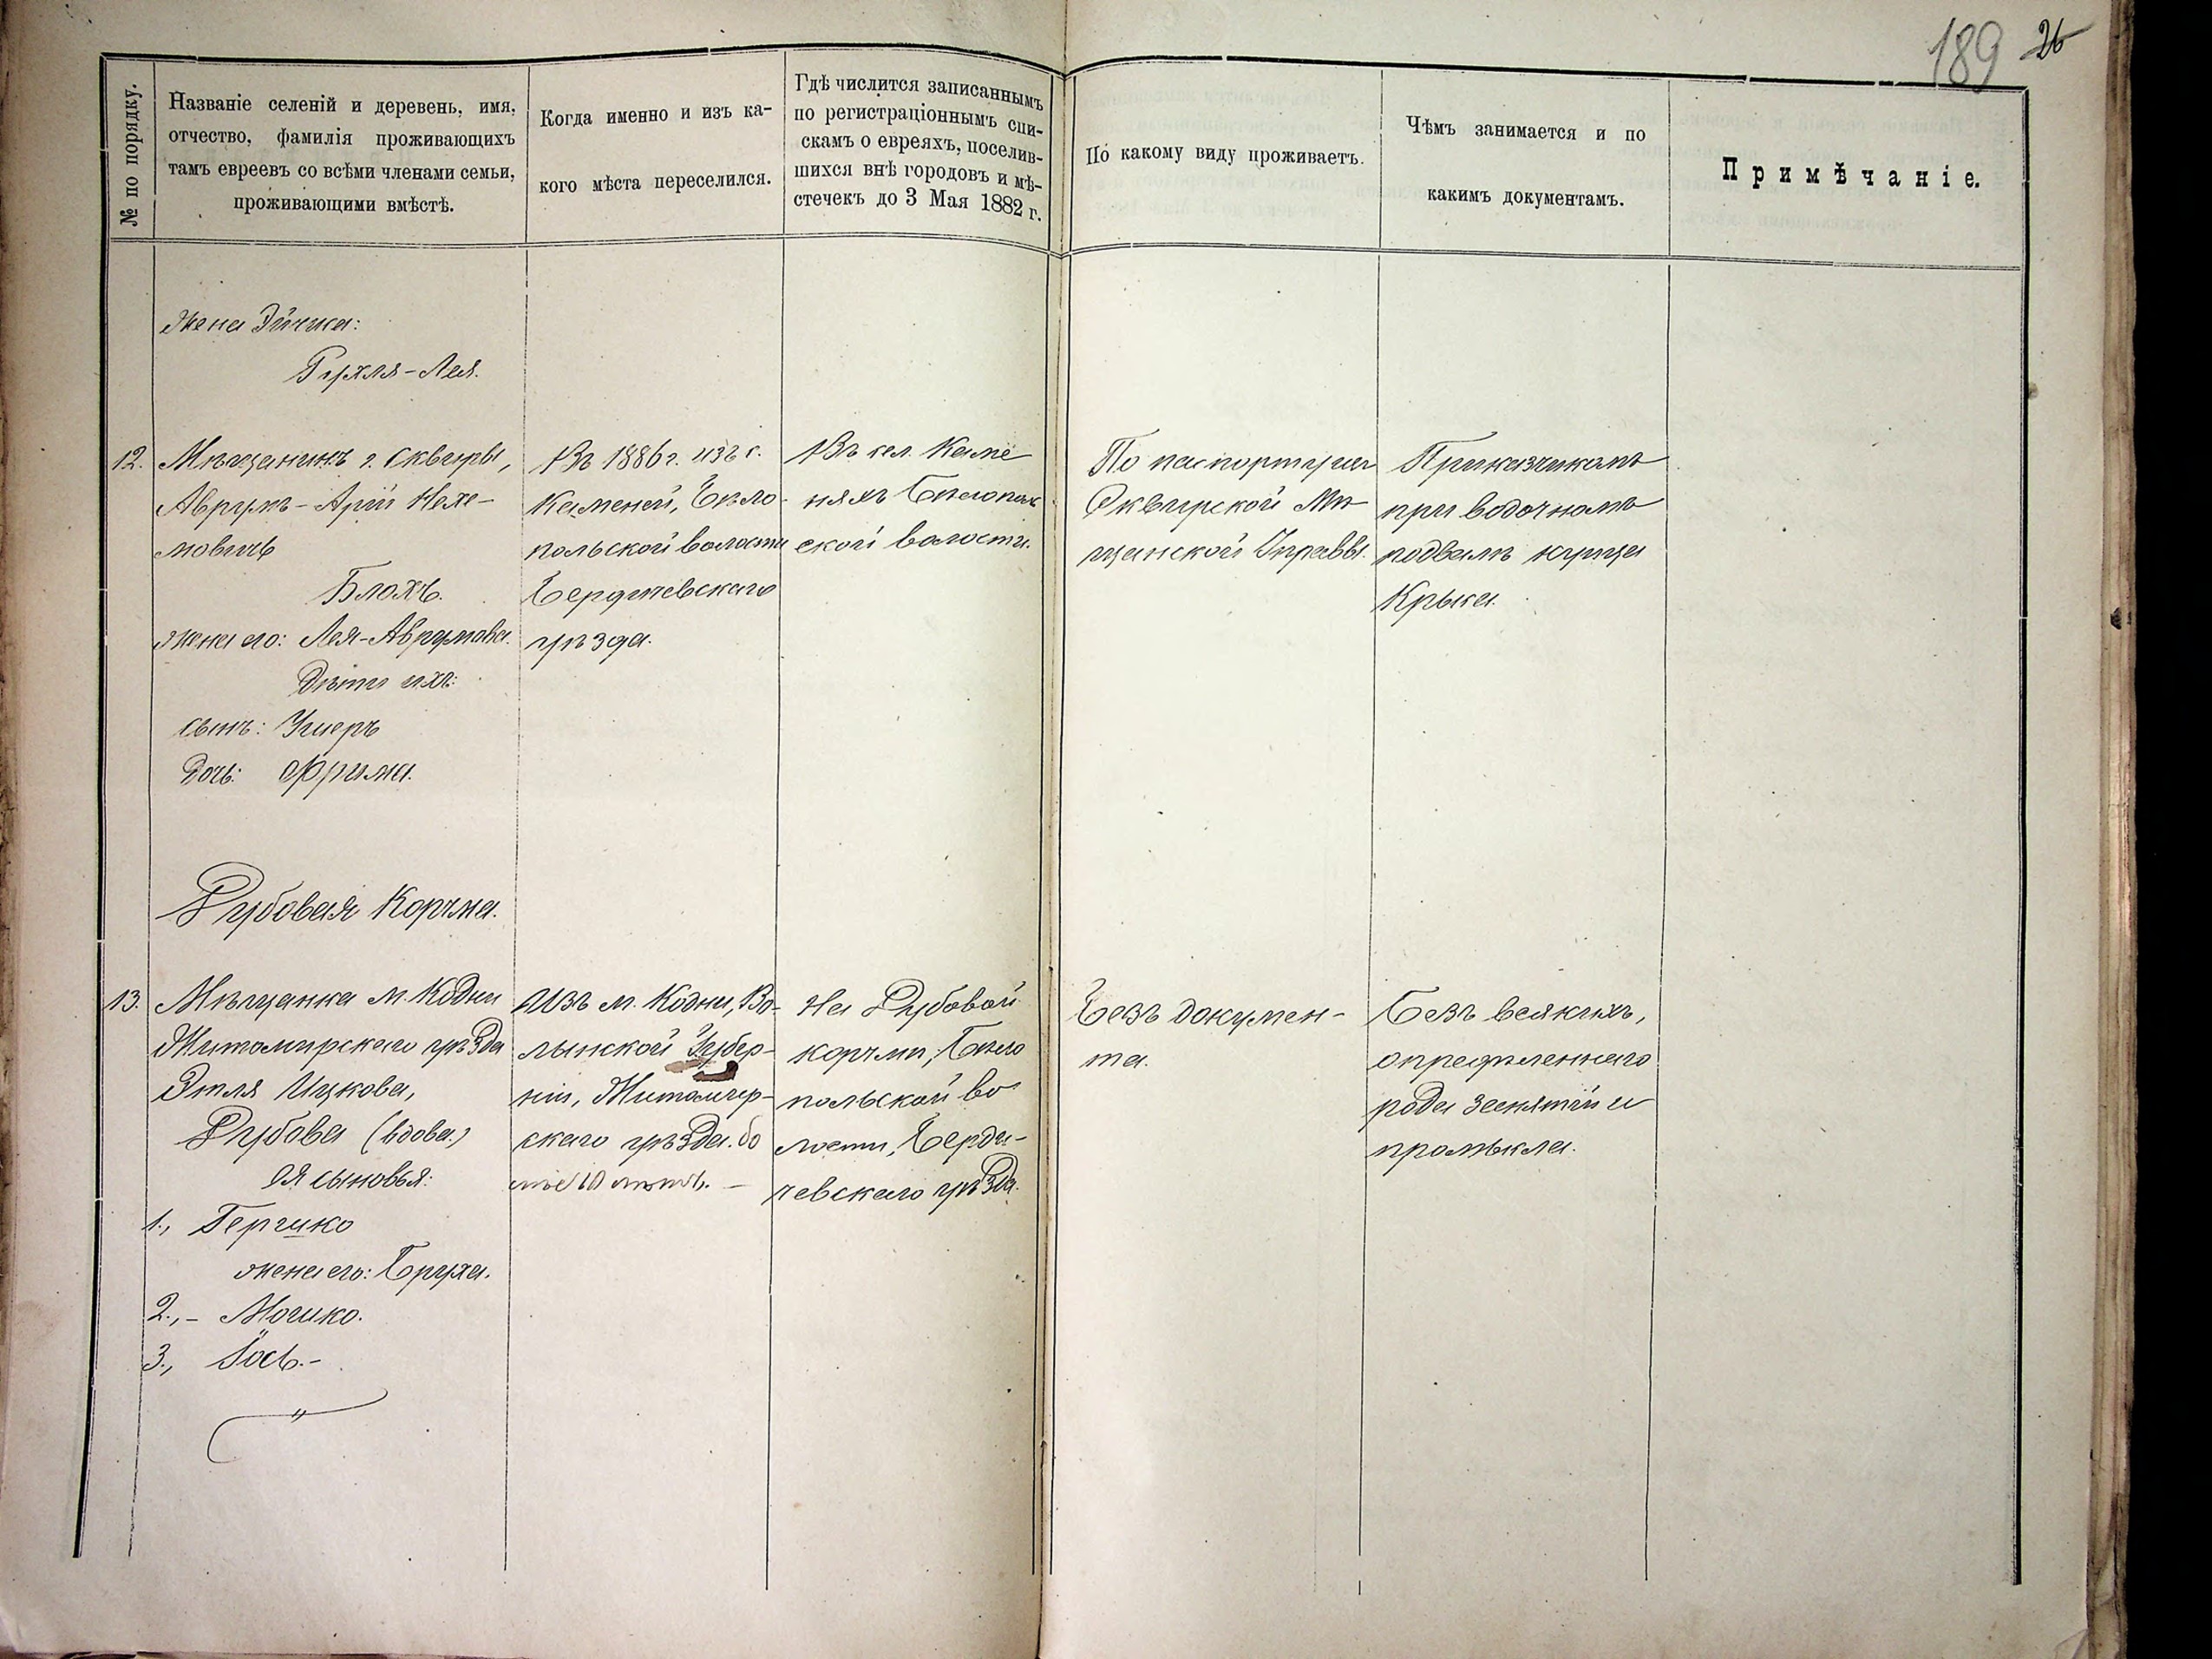 189 26
№ по порядку.
Названіе селеній и деревень, имя,
отчество, фамилія проживающихъ
тамъ евреевъ со всѣми членами семьи,
проживающими вмѣстѣ.
Когда именно и изъ ка-
кого мѣста переселился.
Гдѣ числится записаннымъ
по регистраціоннымъ спи-
скамъ о евреяхъ, поселив-
шихся внѣ городовъ и мѣ-
стечекъ до 3 Мая 1882 г.
По какому виду проживаетъ.
Чѣмъ занимается и по
какимъ документамъ.
Примѣчаніе.
Жена Эйчика:
Рухля-Лея.
12. Мѣщанинъ г. Сквиры,
Аврумъ-Арій Нахе-
мовичъ
Блохъ.
жена его: Лея-Аврумова.
Дѣти ихъ:
сынъ: Ушеръ
Дочь: Фрима.
Въ 1886 г. изъ с.
Каменей, Бѣло-
польской волости
Бердичевскаго
уѣзда.
Въ сел. Каме
няхъ Бѣлополь
ской волости.
По паспорту изъ
Сквирской Мѣ
щанской Управы.
Приказчикомъ
при водочномъ
подвалѣ купца
Крыка.
Рубовая Корчма.
13. Мѣщанка м. Кодни
Житомирскаго уѣзда
Этля Ицкова,
Рубова (вдова)
Ея сыновья:
1., Гершко
жена его: Бруха.
2.,- Мошко.
3., Іось.-
Изъ м. Кодни, Во-
лынской Губер-
ніи, Житомир-
скаго уѣзда. бо
лѣе 10 лѣтъ. -
На Рубовой
корчмѣ, Бѣло
польской во
лости, Берди-
чевскаго уѣзда.
Безъ докумен-
та.
Безъ всякихъ,
опредѣленнаго
рода занятій и
промысла.